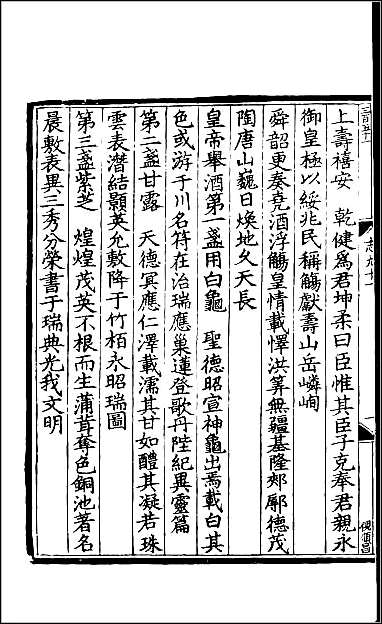 上壽禧安　乾健爲君坤柔曰臣惟其臣子克奉君親永
御皇極以綏兆民稱觴獻壽山岳嶙峋
舜韶更奏堯酒浮觴皇情載懌洪筭無疆基隆郟鄏德茂
陶唐山巍日煥地久天長
皇帝舉酒第一盞用白龜　聖德昭宣神龜出焉載白其
色或游于川名符在治瑞應巢蓮登歌丹陛紀異靈篇
第二盞甘露　天德冥應仁澤載濡其甘如醴其凝若珠
雲表潛結顥英允敷降于竹栢永昭瑞圖
第三盞紫芝　煌煌茂英不根而生蒲茸奪色銅池著名
晨敷表異三秀分榮書于瑞典光我文明